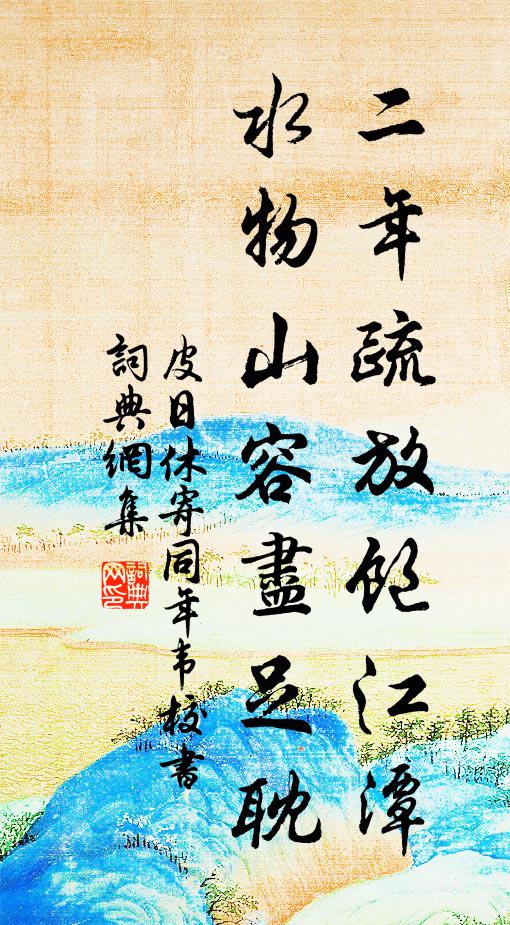 二年疏放飽江潭
水物山容盡足耽
皮日休寄同年韦校書
詞典網集
詞典網印